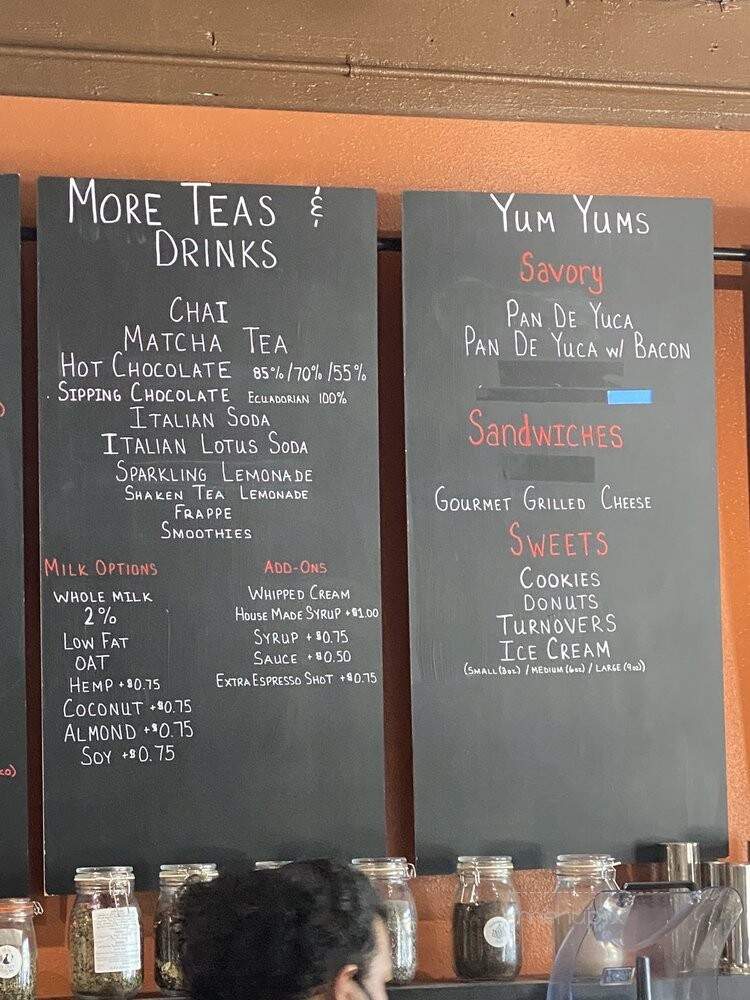 MORE TEAS &
DRINKS
CHAI
MATCHA TEA
HOT CHOCOLATE 85%/70%/55%
SIPPING CHOCOLATE ECUADORIAN 100%
ITALIAN SODA
ITALIAN LOTUS SODA
SPARKLING LEMONADE
SHAKEN TEA LEMONADE
FRAPPE
SMOOTHIES
MILK OPTIONS
WHOLE MILK
2%
LOW FAT
OAT
HEMP +$0.75
COCONUT +$0.75
ALMOND +$0.75
SOY +$0.75
ADD-ONS
WHIPPED CREAM
HOUSE MADE SYRUP +$1.00
SYRUP +$0.75
SAUCE +$0.50
EXTRA ESPRESSO SHOT +$0.75
YUM YUMS
Savory
PAN DE YUCA
PAN DE YUCA W/ BACON
SandWICHES
GOURMET GRILLED CHEESE
SWEETS
COOKIES
DONUTS
TURNOVERS
ICE CREAM
(SMALL (3oz) / MEDIUM (6oz) / LARGE (9oz))